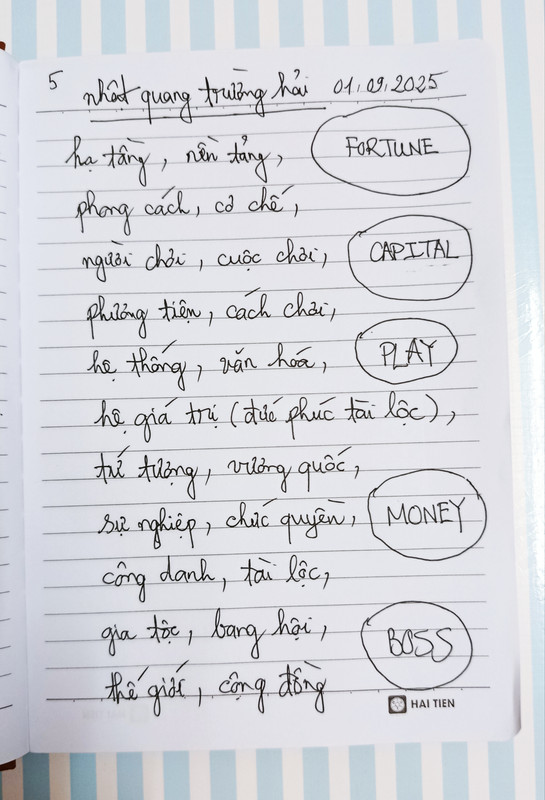 5 nhật quang trường hải 01.09.2025
hạ tầng, nền tảng, FORTUNE
phong cách, cơ chế,
người chơi, cuộc chơi, CAPITAL
phương tiện, cách chơi,
hệ thống, văn hóa, PLAY
hệ giá trị (đức phúc tài lộc),
tư tưởng, vương quốc,
sự nghiệp, chức quyền, MONEY
công danh, tài lộc,
gia tộc, bang hội, BOSS
thế giới, cộng đồng
HAI TIEN